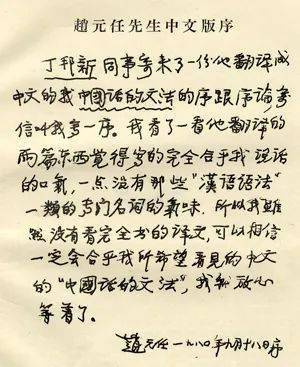 趙元任先生中文版序
丁邦新同事寄来了一份他翻译成
中文的我中國話的文法的序跟序論来
信叫我写一序。我看了一看他翻译的
两篇东西觉得写的完全合乎我说话
的口氣，一点没有那些“漢语语法”
一類的专门名词的氣味。所以我雖
然没有看完全书的译文，可以相信
一定会合乎我所希望看見的中文
的“中國话的文法”，我就放心
等着了。
趙元任一九八〇年九月十八日序